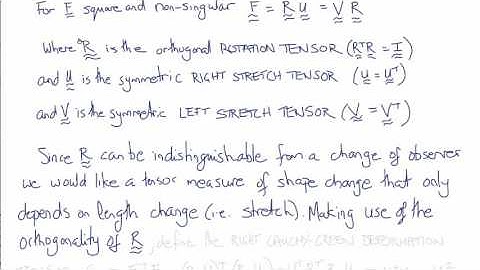 For F square and non-singular F = R U = V R
Where R is the orthogonal ROTATION TENSOR (RᵀR = I)
and U is the symmetric RIGHT STRETCH TENSOR (U = Uᵀ)
and V is the symmetric LEFT STRETCH TENSOR (V = Vᵀ)
Since R can be indistinguishable from a change of observer
we would like a tensor measure of shape change that only
depends on length change (i.e. stretch). Making use of the
orthogonality of R, define the RIGHT CAUCHY-GREEN DEFORMATION